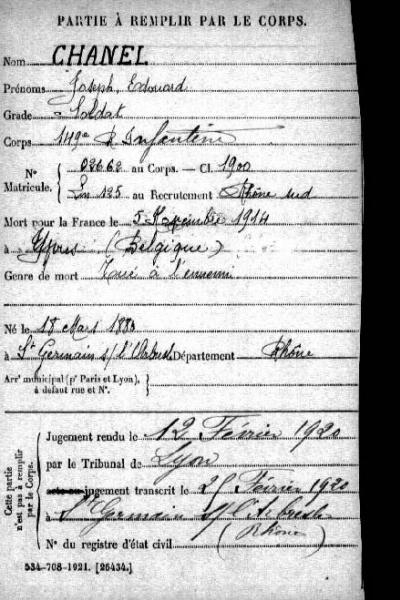 PARTIE À REMPLIR PAR LE CORPS.
Nom CHANEL
Prénoms Joseph, Edouard
Grade Soldat
Corps 149e R Infanterie
N° Matricule. 03662 au Corps. — Cl. 1900
Ln 125 au Recrutement Rhône sud
Mort pour la France le 5 Novembre 1914
à Ypres (Belgique)
Genre de mort Tué à l'ennemi
Né le 18 Mars
à St Germain s/ l'Arbresle Département Rhône
Arrt municipal (pr Paris et Lyon),
à défaut rue et N°.
Cette partie n'est pas à remplir par le Corps.
Jugement rendu le 12 Février 1920
par le Tribunal de Lyon
jugement transcrit le 25 Février 1920
à St Germain s/ l'Arbresle
(Rhône)
N° du registre d'état civil
534-708-1921. [26434.]